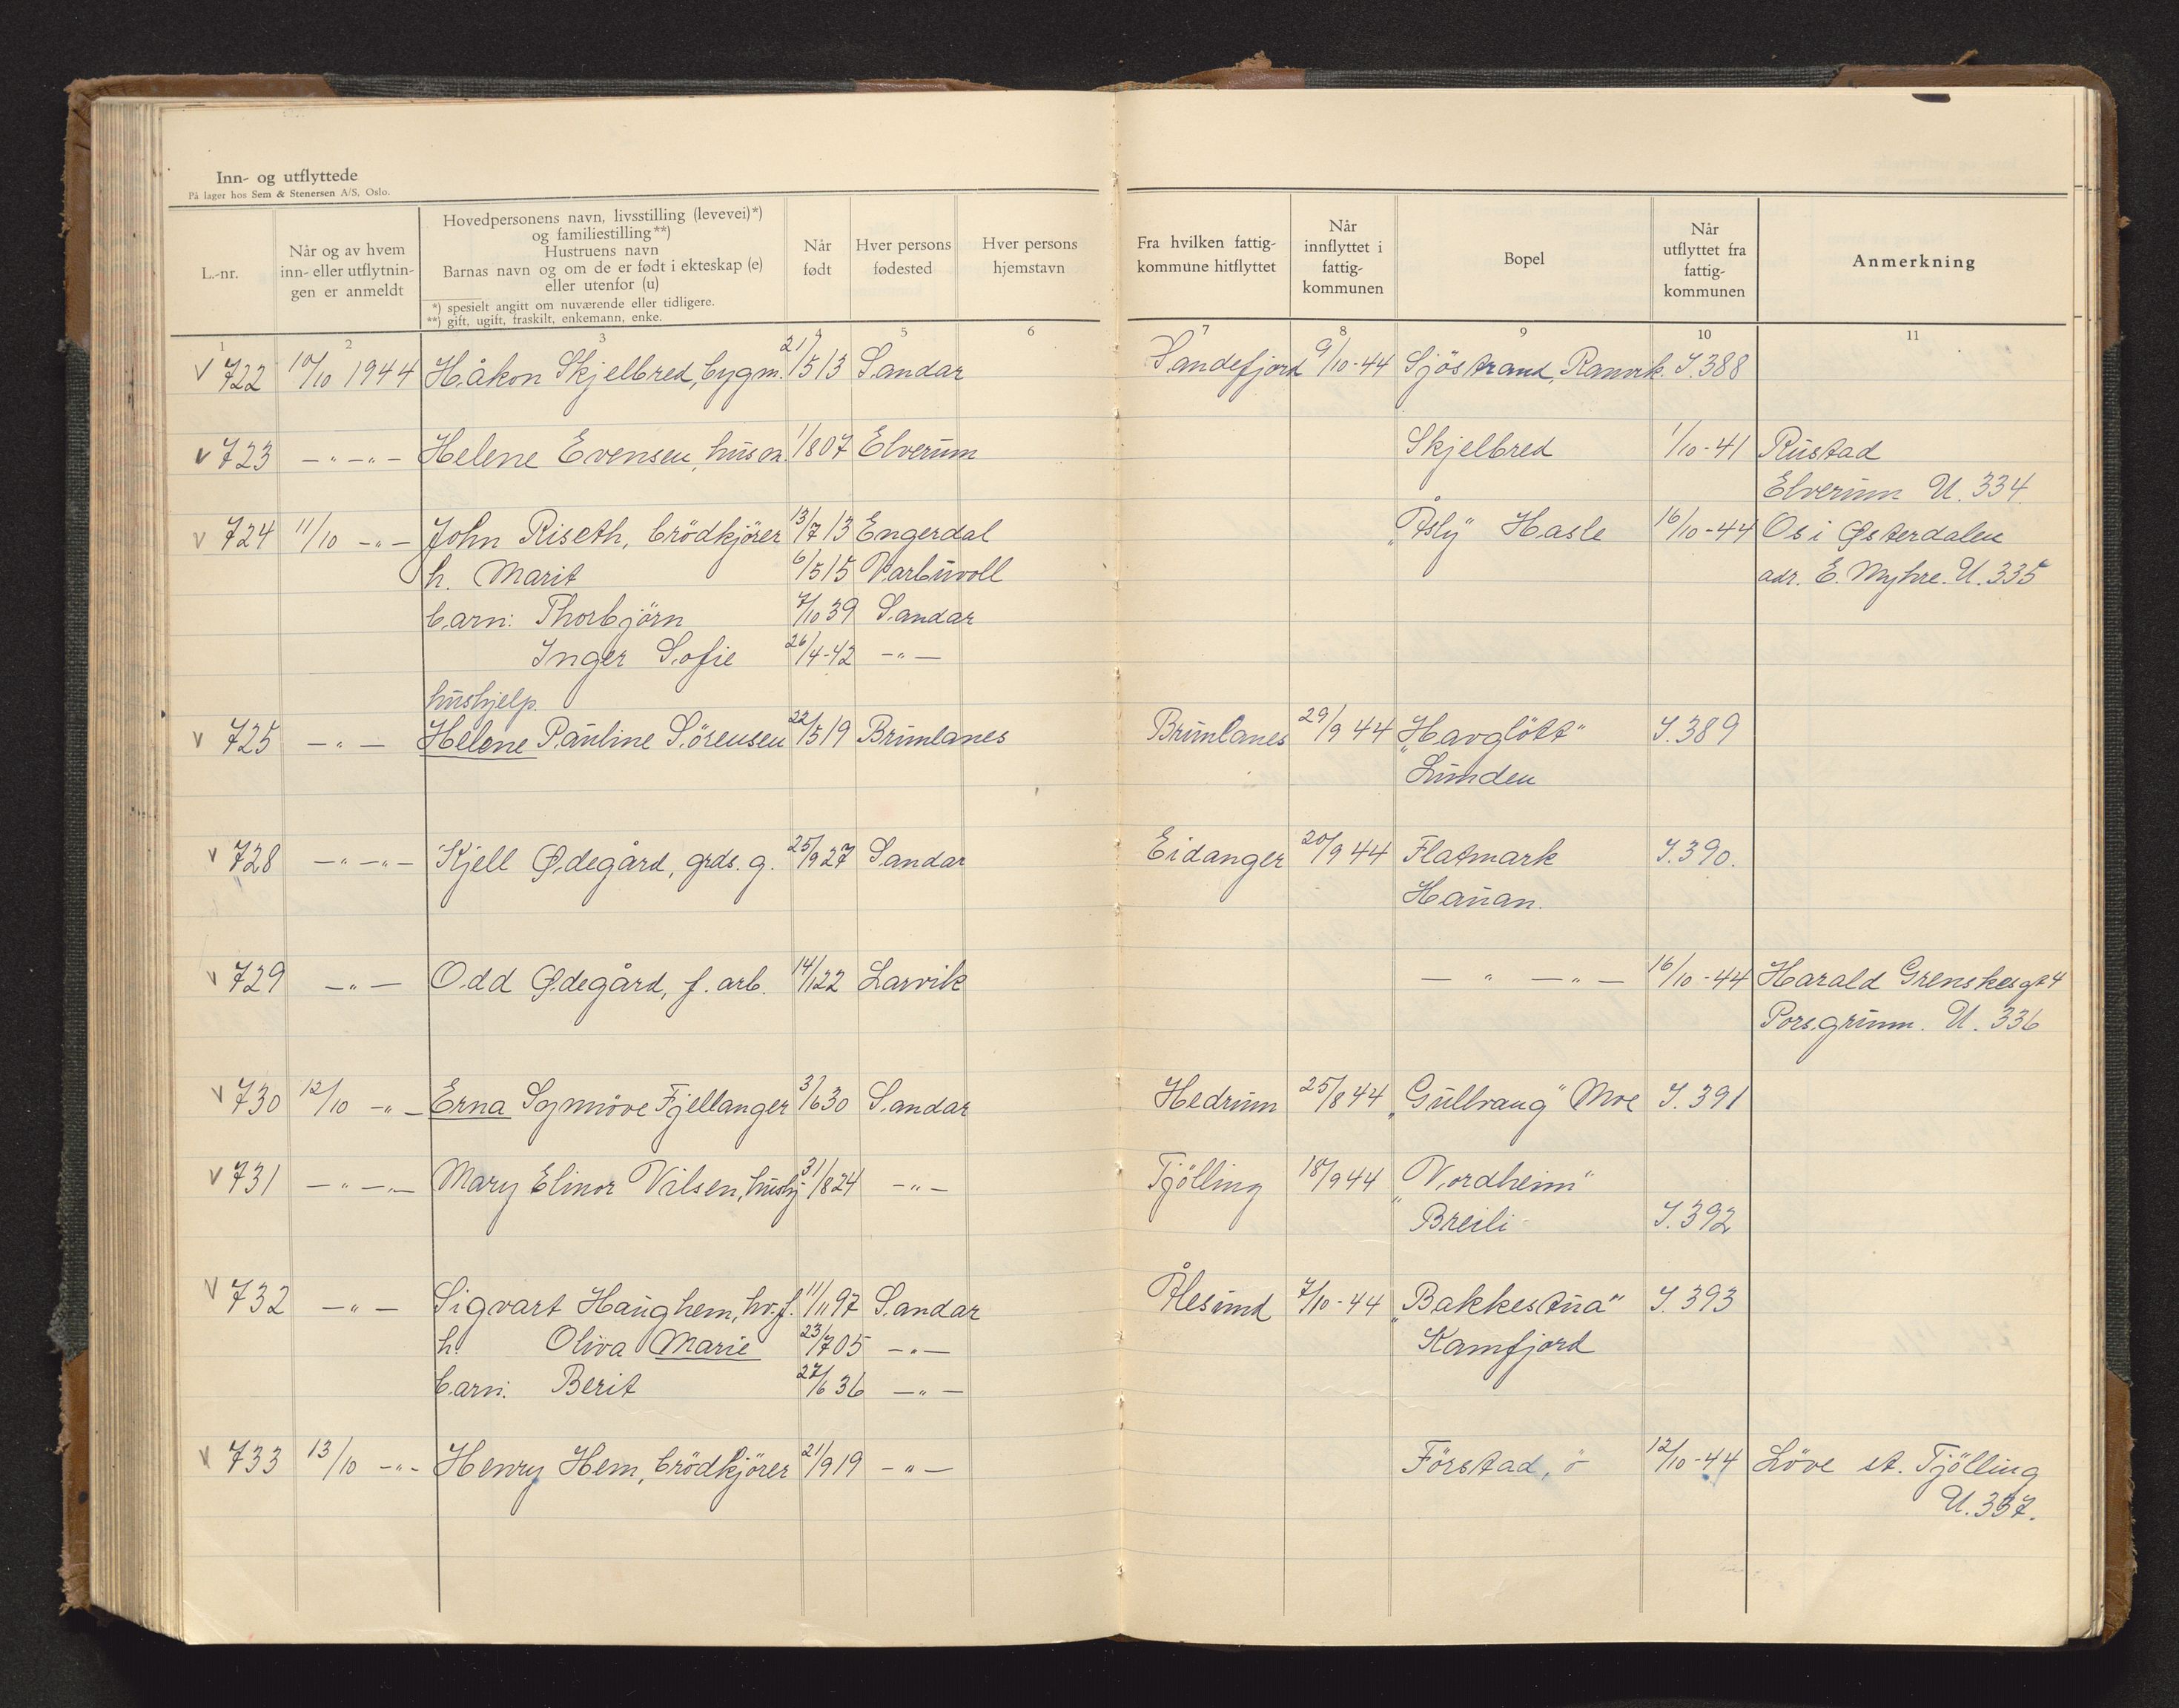 Inn- og utflyttede
På lager hos Sem & Stenersen A/S, Oslo.
L.-nr.
Når og av hvem
inn- eller utflytnin-
gen er anmeldt
Hovedpersonens navn, livsstilling (levevei)*)
og familiestilling**)
Hustruens navn
Barnas navn og om de er født i ekteskap (e)
eller utenfor (u)
*) spesielt angitt om nuværende eller tidligere.
**) gift, ugift, fraskilt, enkemann, enke.
Når
født
Hver persons
fødested
Hver persons
hjemstavn
Fra hvilken fattig-
kommune hitflyttet
Når
innflyttet i
fattig-
kommunen
Bopel
Når
utflyttet fra
fattig-
kommunen
Anmerkning
1 2 3 4 5 6 7 8 9 10 11
v 722 10/10 1944 Håkon Skjelbred, bygm. 21/5 13 Sandar Sandefjord 9/10-44 Sjöstrand, Ranvik. I.388
v 723 -"-"- Helene Evensen, husm. 1/8 07 Elverum Skjelbred 1/10-41 Rustad
Elverum U. 334
v 724 11/10 -"- John Riseth, brödkjörer 13/7 13 Engerdal "Åsly" Hasle 16/10-44 Os i Østerdalen
h. Marit 6/5 15 Narbuvoll adr. E. Myhre. U. 335
barn: Thorbjörn 7/10 39 Sandar
Inger Sofie 26/4-42 -"-
hushjelp.
v 725 -"- Helene Pauline Sörensen 22/5 19 Brunlanes Brunlanes 29/9 44 "Havglött" I.389
Lunden
v 728 -"-"- Kjell Ødegård, grds. g. 25/9 27 Sandar Eidanger 20/9 44 Flatmark I.390.
Hauan.
v 729 -"- Odd Ødegård, f. arb. 14/1 22 Larvik -"-"- 16/10-44 Harald Grenskesgt 4
Porsgrunn. U. 336
v 730 12/10 -"- Erna Synnöve Fjellanger 3/6 30 Sandar Hedrum 25/8 44 "Gullvang" Moe I. 391
v 731 -"-"- Mary Elinor Nilsen, hushj. 31/8 24 -"- Tjölling 18/9 44 "Nordheim"
Breili I.392
v 732 -"- Sigvart Haughem, hv.f. 11/11 97 Sandar Ålesund 7/10-44 "Bakkestua" I. 393
h. Oliva Marie 23/7 05 -"- Kamfjord
barn: Berit 27/6 36 -"-
v 733 13/10 -"- Henry Hem, brödkjörer 21/9 19 -"- Förstad, ö 12/10-44 Löve st. Tjölling
U. 337.